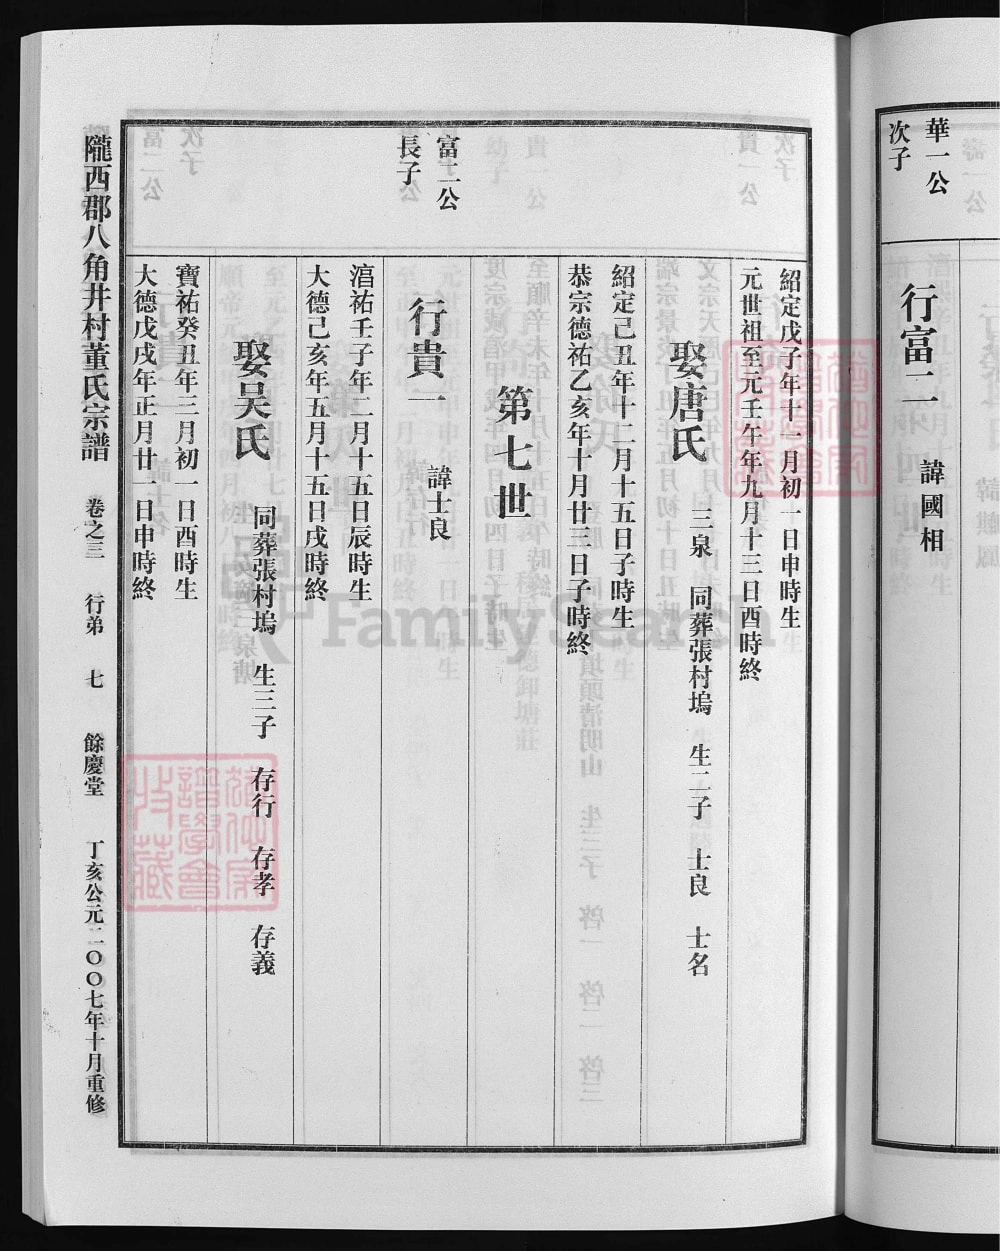 華一公
次子
行富二
諱國相
紹定戊子年十一月初一日申時生
元世祖至元壬午年九月十三日酉時終
娶唐氏 三泉 同葬張村塢 生二子 士良 士名
紹定己丑年十二月十五日子時生
恭宗德祐乙亥年十月廿三日子時終
第七世
富二公
長子
行貴一
諱士良
淐祐壬子年二月十五日辰時生
大德己亥年五月十五日戌時終
娶吳氏 同葬張村塢 生三子 存行 存孝 存義
寶祐癸丑年三月初一日酉時生
大德戊戌年正月廿一日申時終
隴西郡八角井村董氏宗譜 卷之三 行弟 七 餘慶堂 丁亥公元二〇〇七年十月重修
FamilySearch